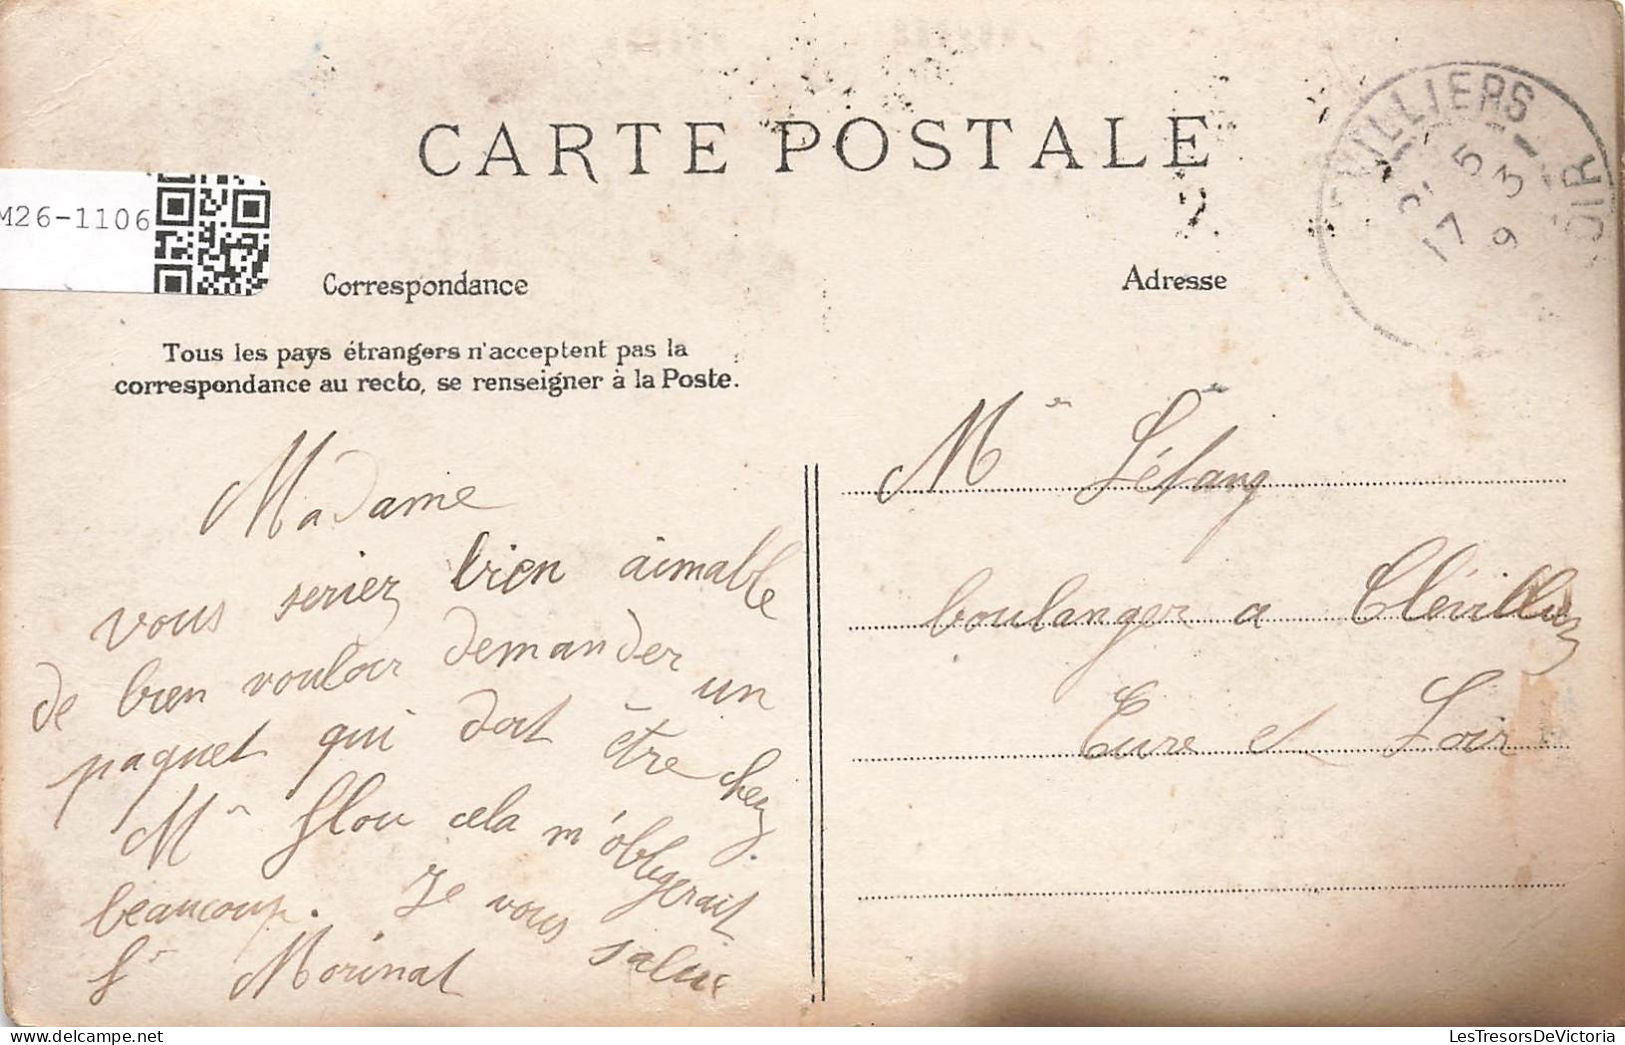 CARTE POSTALE
M26-1106
Correspondance
Tous les pays étrangers n'acceptent pas la
correspondance au recto, se renseigner à la Poste.
Madame
vous seriez bien aimable
de bien vouloir demander un
paquet qui doit être chez
Mr flou cela m'obligerait
beaucoup. Je vous salue
Morinat
Adresse
VILLIERS
OIR
Létang
boulanger a Clévilliers
Eure et Loir
LesTresorsDeVictoria